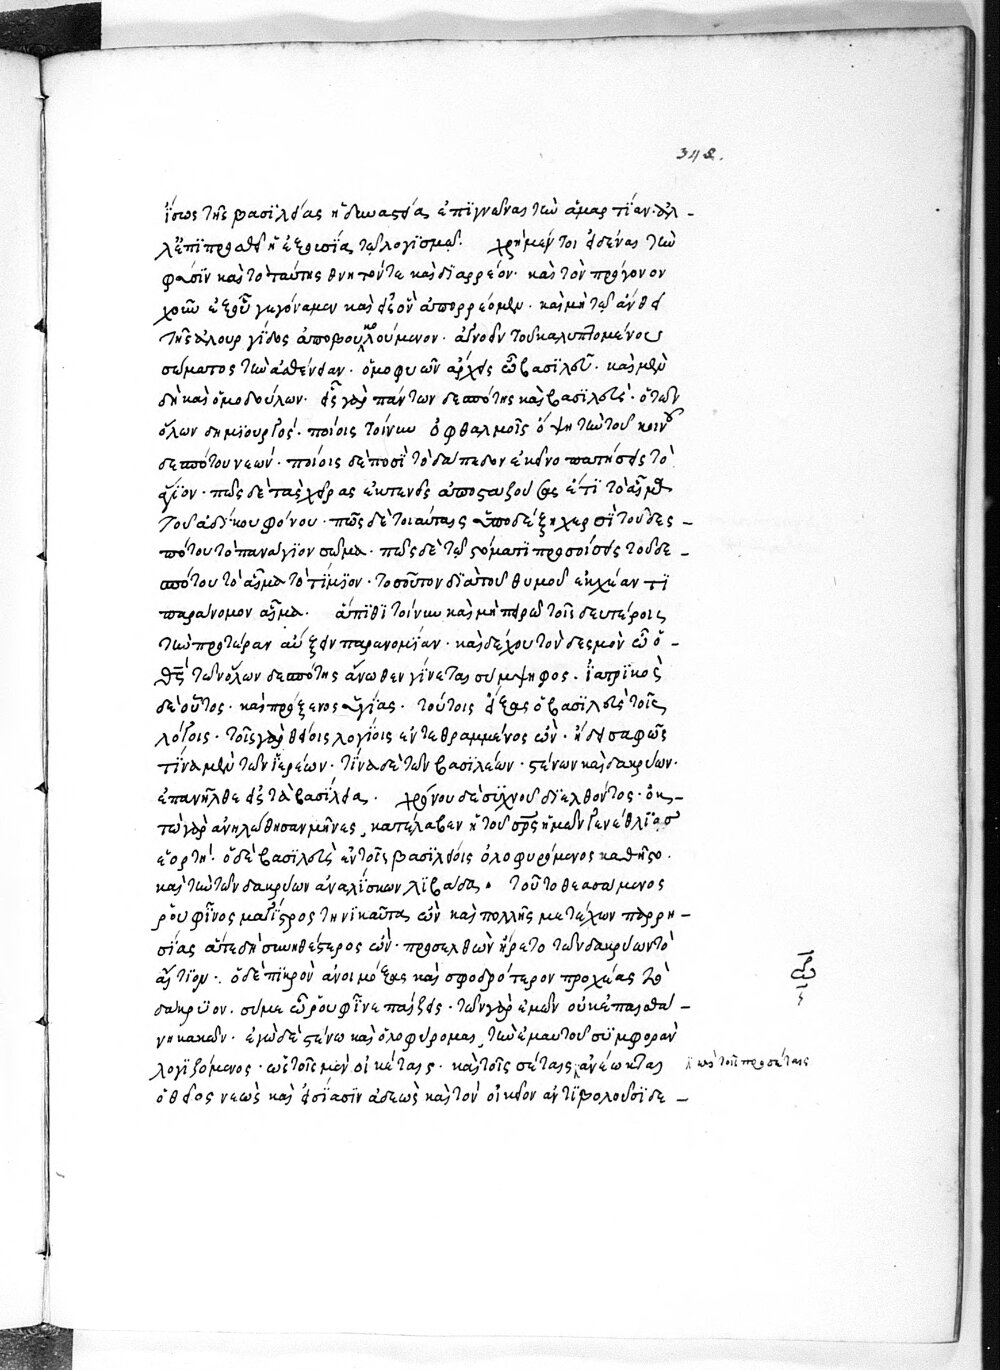 348.
ἴσως τῆς βασιλείας ἡ δυναστεία ἐπιγνῶναι τὴν ἁμαρτίαν· ἀλ-
λ' ἐπιπροσθεῖ ἡ ἐξουσία τῷ λογισμῷ. χρὴ μέντοι εἰδέναι τὴν
φύσιν καὶ τὸ ταύτης θνητόν τε καὶ διαρρέον· καὶ τὸν πρόγονον
χοῦν ἐξ οὗ γεγόναμεν καὶ εἰς ὃν ἀπορρέομεν· καὶ μὴ τῷ ἄνθει
τῆς ἁλουργίδος ἀποβουκολούμενον· ἀγνοεῖν τοῦ καλυπτομένου
σώματος τὴν ἀσθένειαν. ὁμοφυῶν ἄρχεις ὦ βασιλεῦ· καὶ μὲν
δὴ καὶ ὁμοδούλων· εἷς γὰρ πάντων δεσπότης καὶ βασιλεύς· ὁ τῶν
ὅλων δημιουργός· ποίοις τοίνυν ὀφθαλμοῖς ὄψῃ τὸν τοῦ κοινοῦ
δεσπότου νεών· ποίοις δὲ ποσὶ τὸ δάπεδον ἐκεῖνο πατήσεις τὸ
ἅγιον· πῶς δὲ τὰς χεῖρας ἐκτενεῖς ἀποσταζούσας ἔτι τὸ αἷμα
τοῦ ἀδίκου φόνου· πῶς δὲ τοιαύταις ὑποδέξῃ χερσὶ τοῦ δεσ-
πότου τὸ πανάγιον σῶμα· πῶς δὲ τῷ στόματι προσοίσεις τοῦ δε-
σπότου τὸ αἷμα τὸ τίμιον· τοσοῦτον διὰ τοῦ θυμοῦ ἐκχέαντι
παράνομον αἷμα. ἄπιθι τοίνυν καὶ μὴ πειρῶ τοῖς δευτέροις
τὴν προτέραν αὔξειν παρανομίαν· καὶ δέχου τὸν δεσμὸν ᾧ ὁ
θς ὁ τῶν ὅλων δεσπότης ἄνωθεν γίνεται σύμψηφος. ἰατρικὸς
δὲ οὗτος· καὶ πρόξενος ὑγίας. τούτοις εἴξας ὁ βασιλεὺς τοῖς
λόγοις· τοῖς γὰρ θείοις λογίοις ἐντεθραμμένος ὤν· ᾔδει σαφῶς
τίνα μὲν τῶν ἱερέων· τίνα δὲ τῶν βασιλέων· στένων καὶ δακρύων·
ἐπανῆλθε εἰς τὰ βασίλεια. χρόνου δὲ συχνοῦ διελθόντος· ὀκ-
τὼ γὰρ ἀνηλώθησαν μῆνες, κατέλαβεν ἡ τοῦ σρς ἡμῶν γενέθλιος
ἑορτή· ὁ δὲ βασιλεὺς ἐν τοῖς βασιλείοις ὀλοφυρόμενος καθῆστο·
καὶ τὴν τῶν δακρύων ἀναλίσκων λιβάδα. τοῦτο θεασάμενος
ῥουφῖνος μάγιστρος τηνικαῦτα ὢν καὶ πολλῆς μετέχων παρρη-
σίας ἅτε δὴ συνηθέστερος ὤν· προσελθὼν ἤρετο τῶν δακρύων τὸ
αἴτιον. ὁ δὲ πικρὸν ἀνοιμώξας καὶ σφοδρότερον προχέας τὸ
δάκρυον. σὺ μὲν ὦ ῥουφῖνε παίζεις· τῶν γὰρ ἐμῶν οὐκ ἐπαισθά-
νῃ κακῶν· ἐγὼ δὲ στένω καὶ ὀλοφύρομαι, τὴν ἐμαυτοῦ συμφορὰν
λογιζόμενος· ὡς τοῖς μὲν οἰκέταις· καὶ τοῖς σέταις ἀνέωκται
ὁ θεῖος νεὼς καὶ εἰσίασιν ἀδεῶς καὶ τὸν οἰκεῖον ἀντιβολοῦσι δε-
ἴσως τοῖς προσαίταις